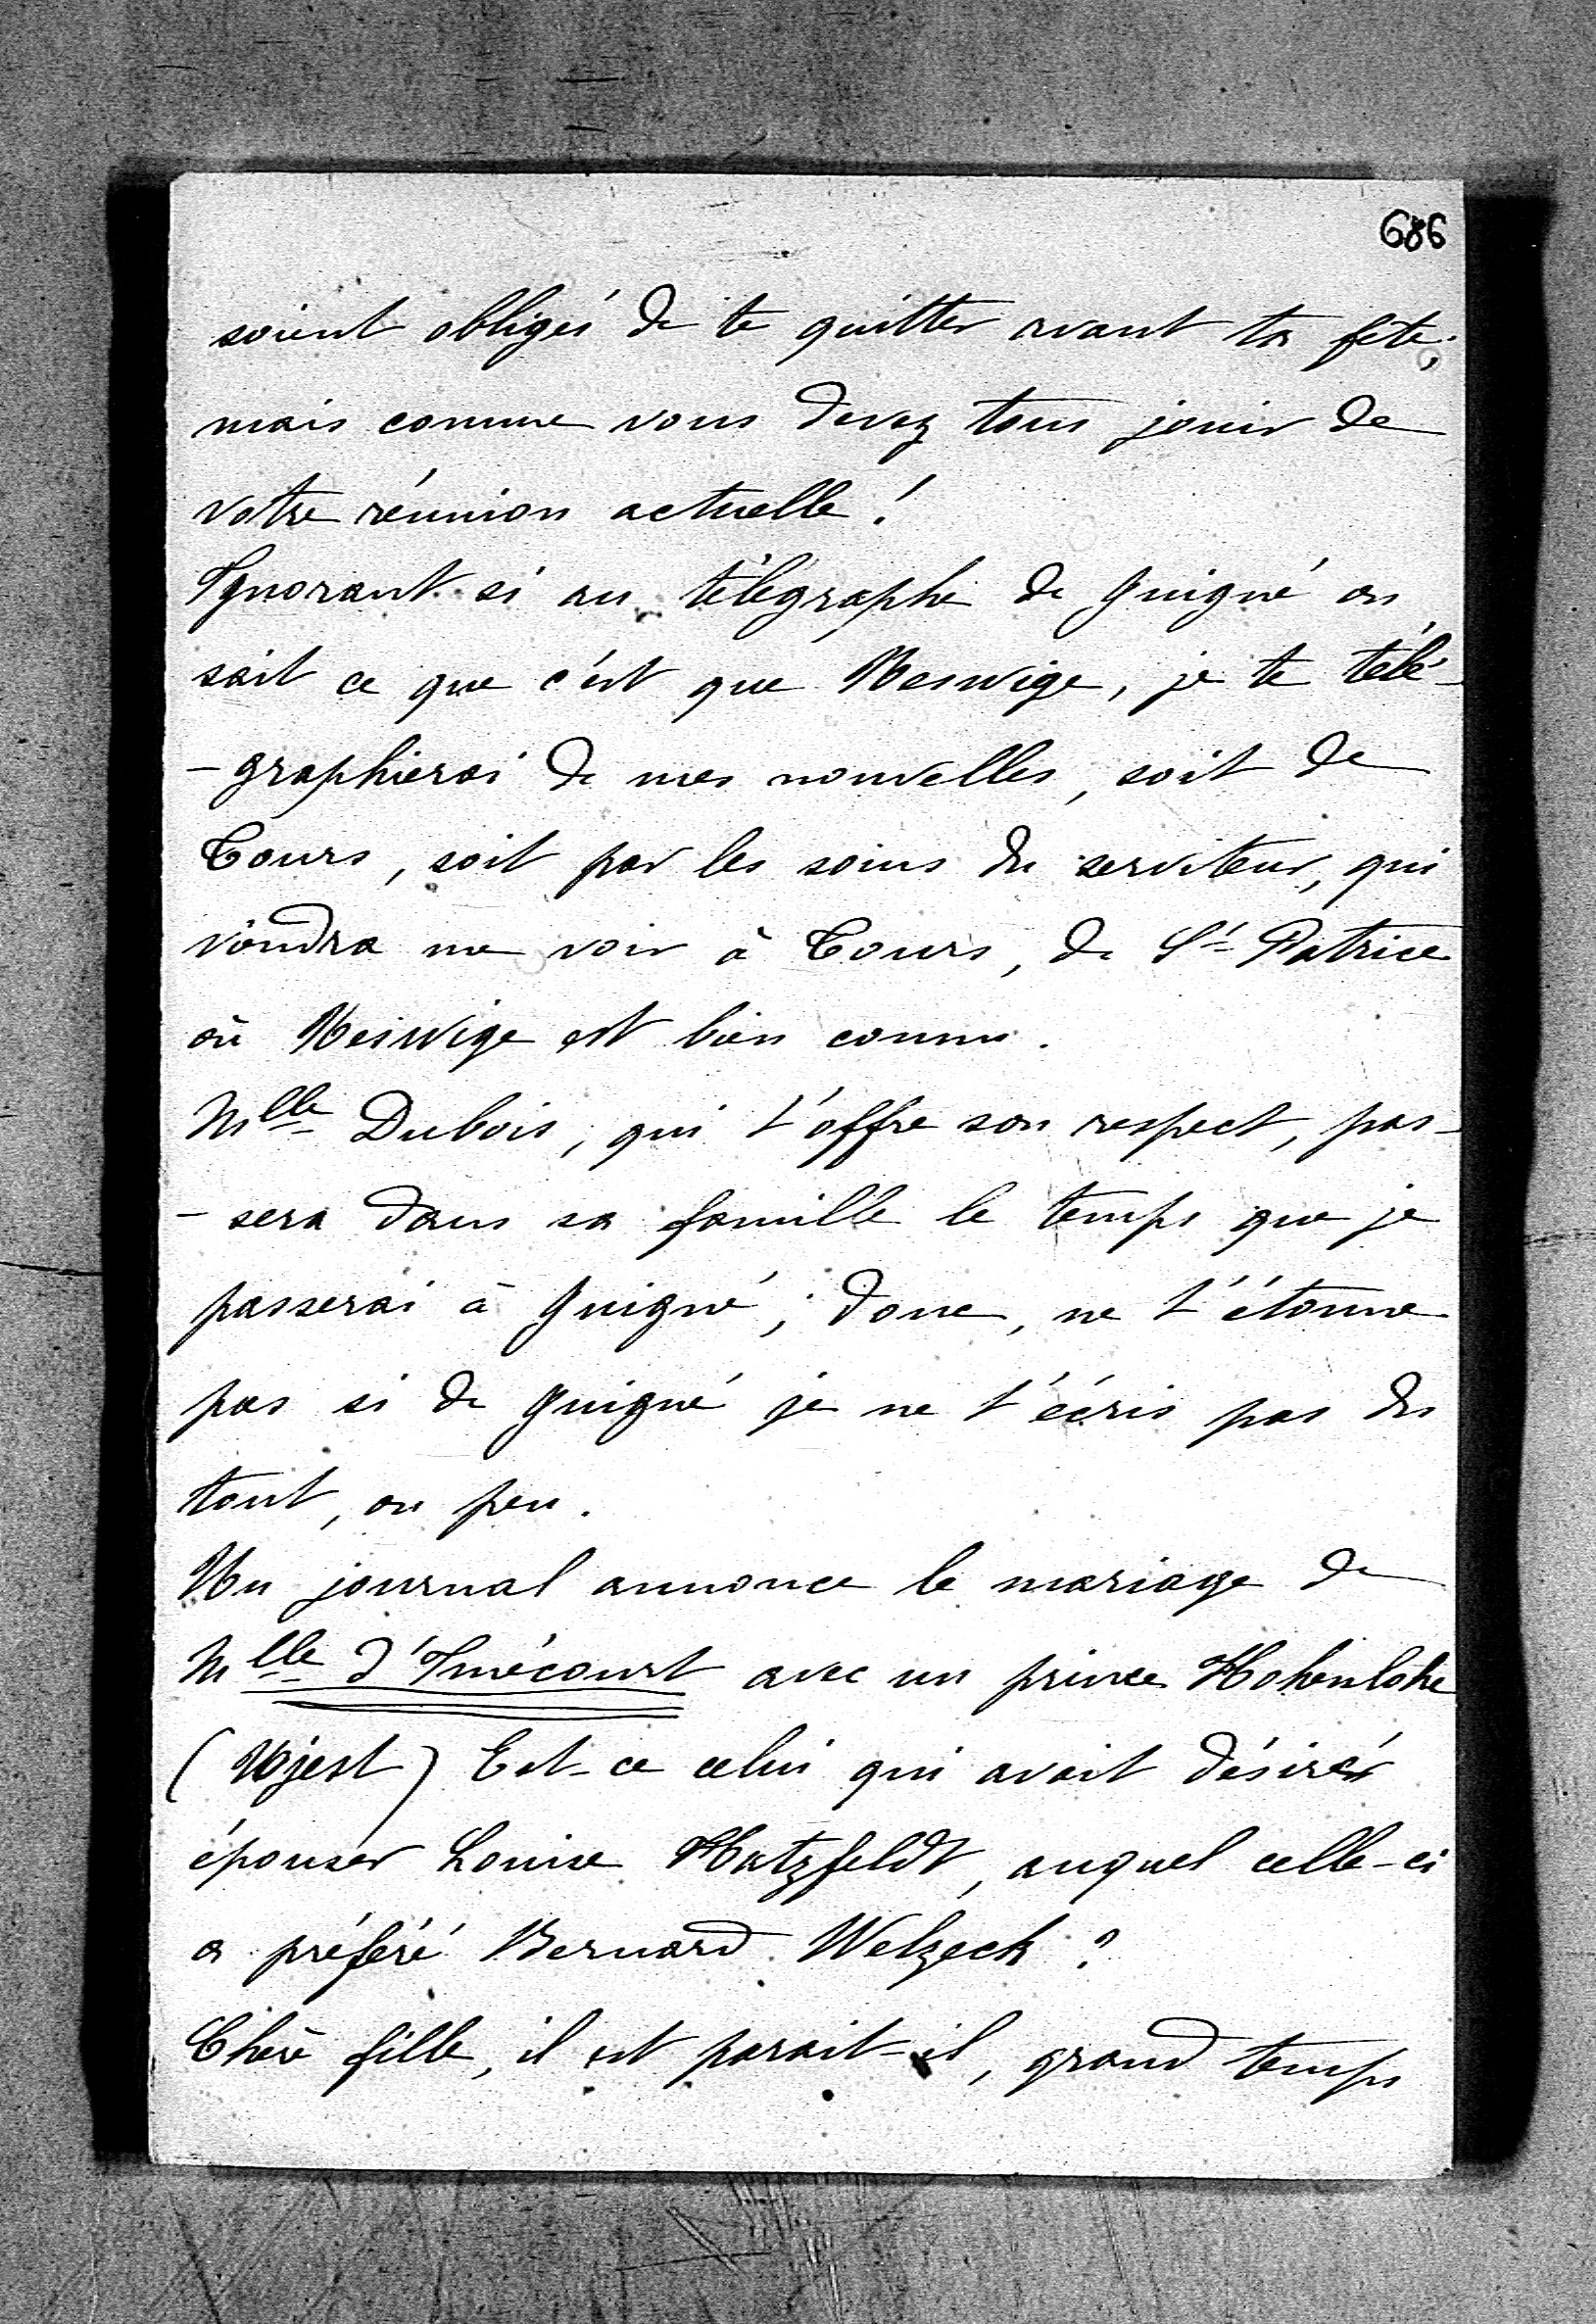 686
soient obligés de te quitter avant ta fête;
mais comme vous devez tous jouir de
votre réunion actuelle!
Ignorant si au télégraphe de Guigné on
sait ce que c'est que Neswige, je te télé-
-graphierai de mes nouvelles, soit de
Tours, soit par les soins du serviteur, qui
viendra me voir à Tours, de St Patrice
où Neswige est bien connu.
Mlle Dubois, qui t'offre son respect, pas-
-sera dans sa famille le temps que je
passerai à Guigné; donc, ne t'étonne
pas si de Guigné je ne t'écris pas du
tout, ou peu.
Un journal annonce le mariage de
Mlle d'Imécourt avec un prince Hohenlohe
(Ujest) Est-ce celui qui avait désiré
épouser Louise Hatzfeldt, auquel celle-ci
a préféré Bernard Welzeck?
Chère fille, il est parait-il, grand temps